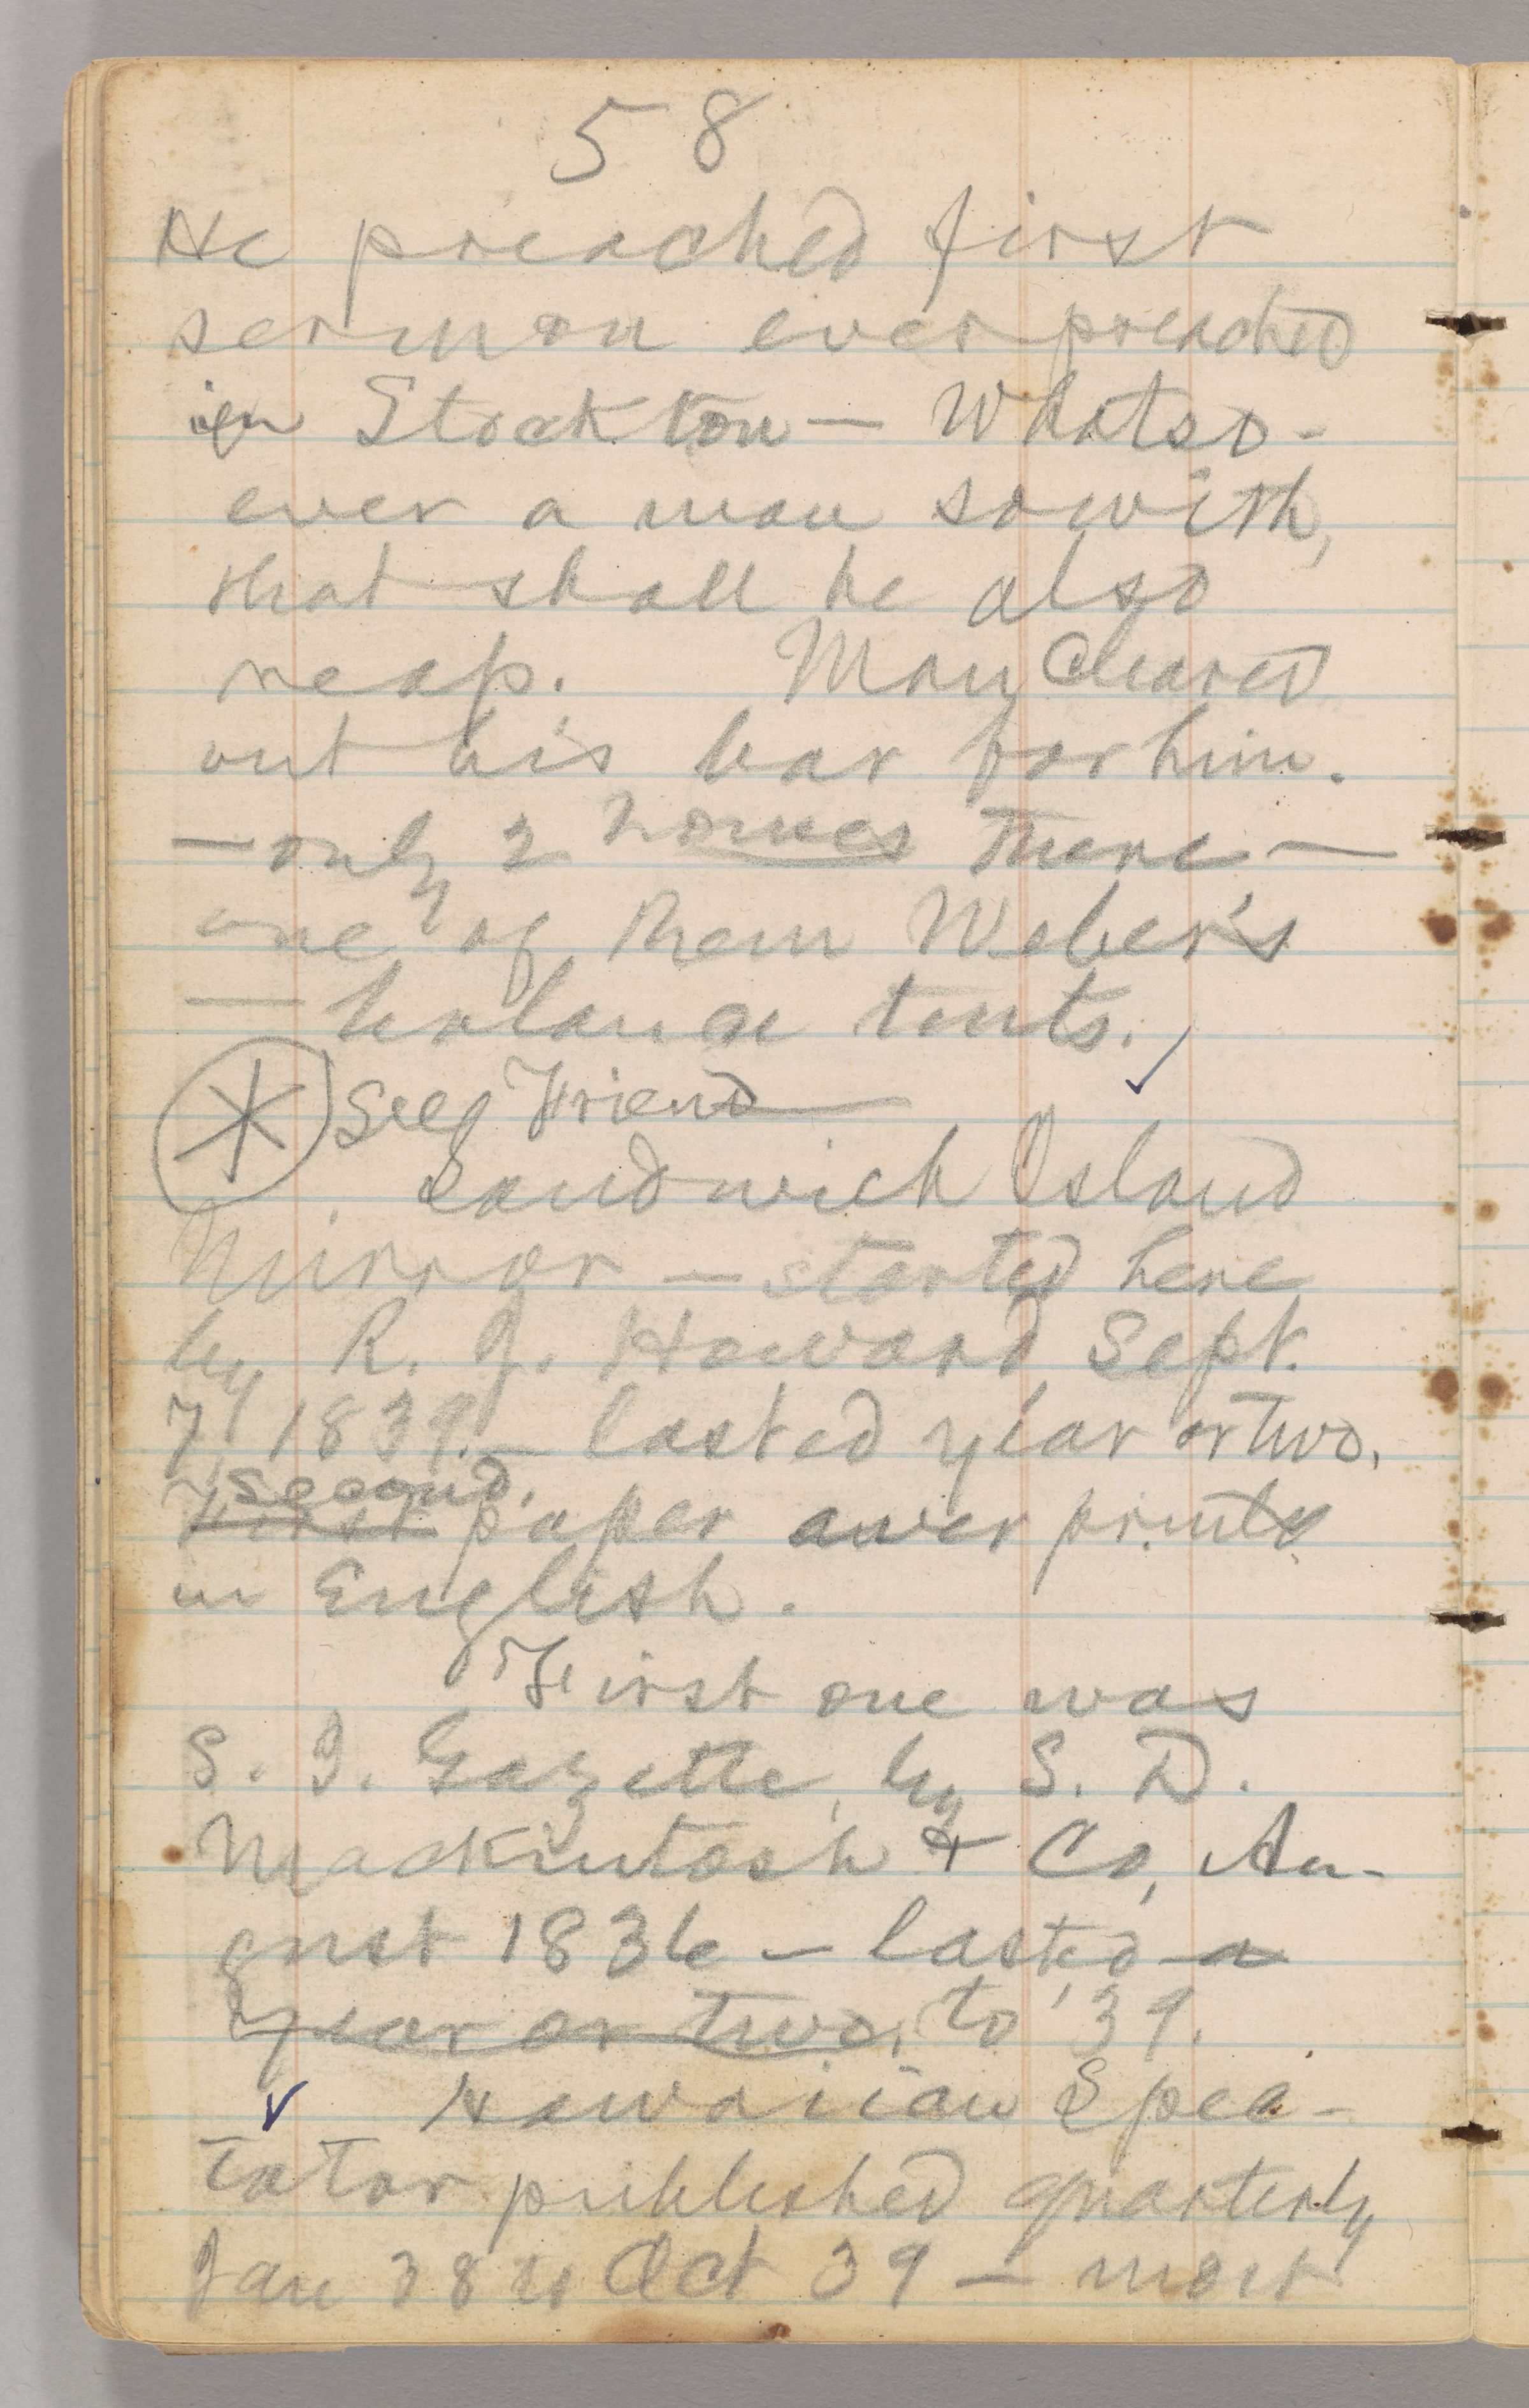 58
He preached first
sermon ever preached
in Stockton — Whatso-
ever a man sowith,
that shall he also
reap. Man cleared
out his bar for him.
— only 2 houses there —
one of them Weber's
— balance tents.
* See Friend
Sandwich Island
Mirror — started here
by R. J. Howard, Sept.
7, 1839. — lasted year or two.
second.
First paper ever printed
in English.
First one was
S. I. Gazette, by S. D.
Mackintosh & Co, Au-
gust 1836 — lasted a
year or two, to '39.
Hawaiian Spec-
tator published quarterly
Jan 38 to Oct 39 — most